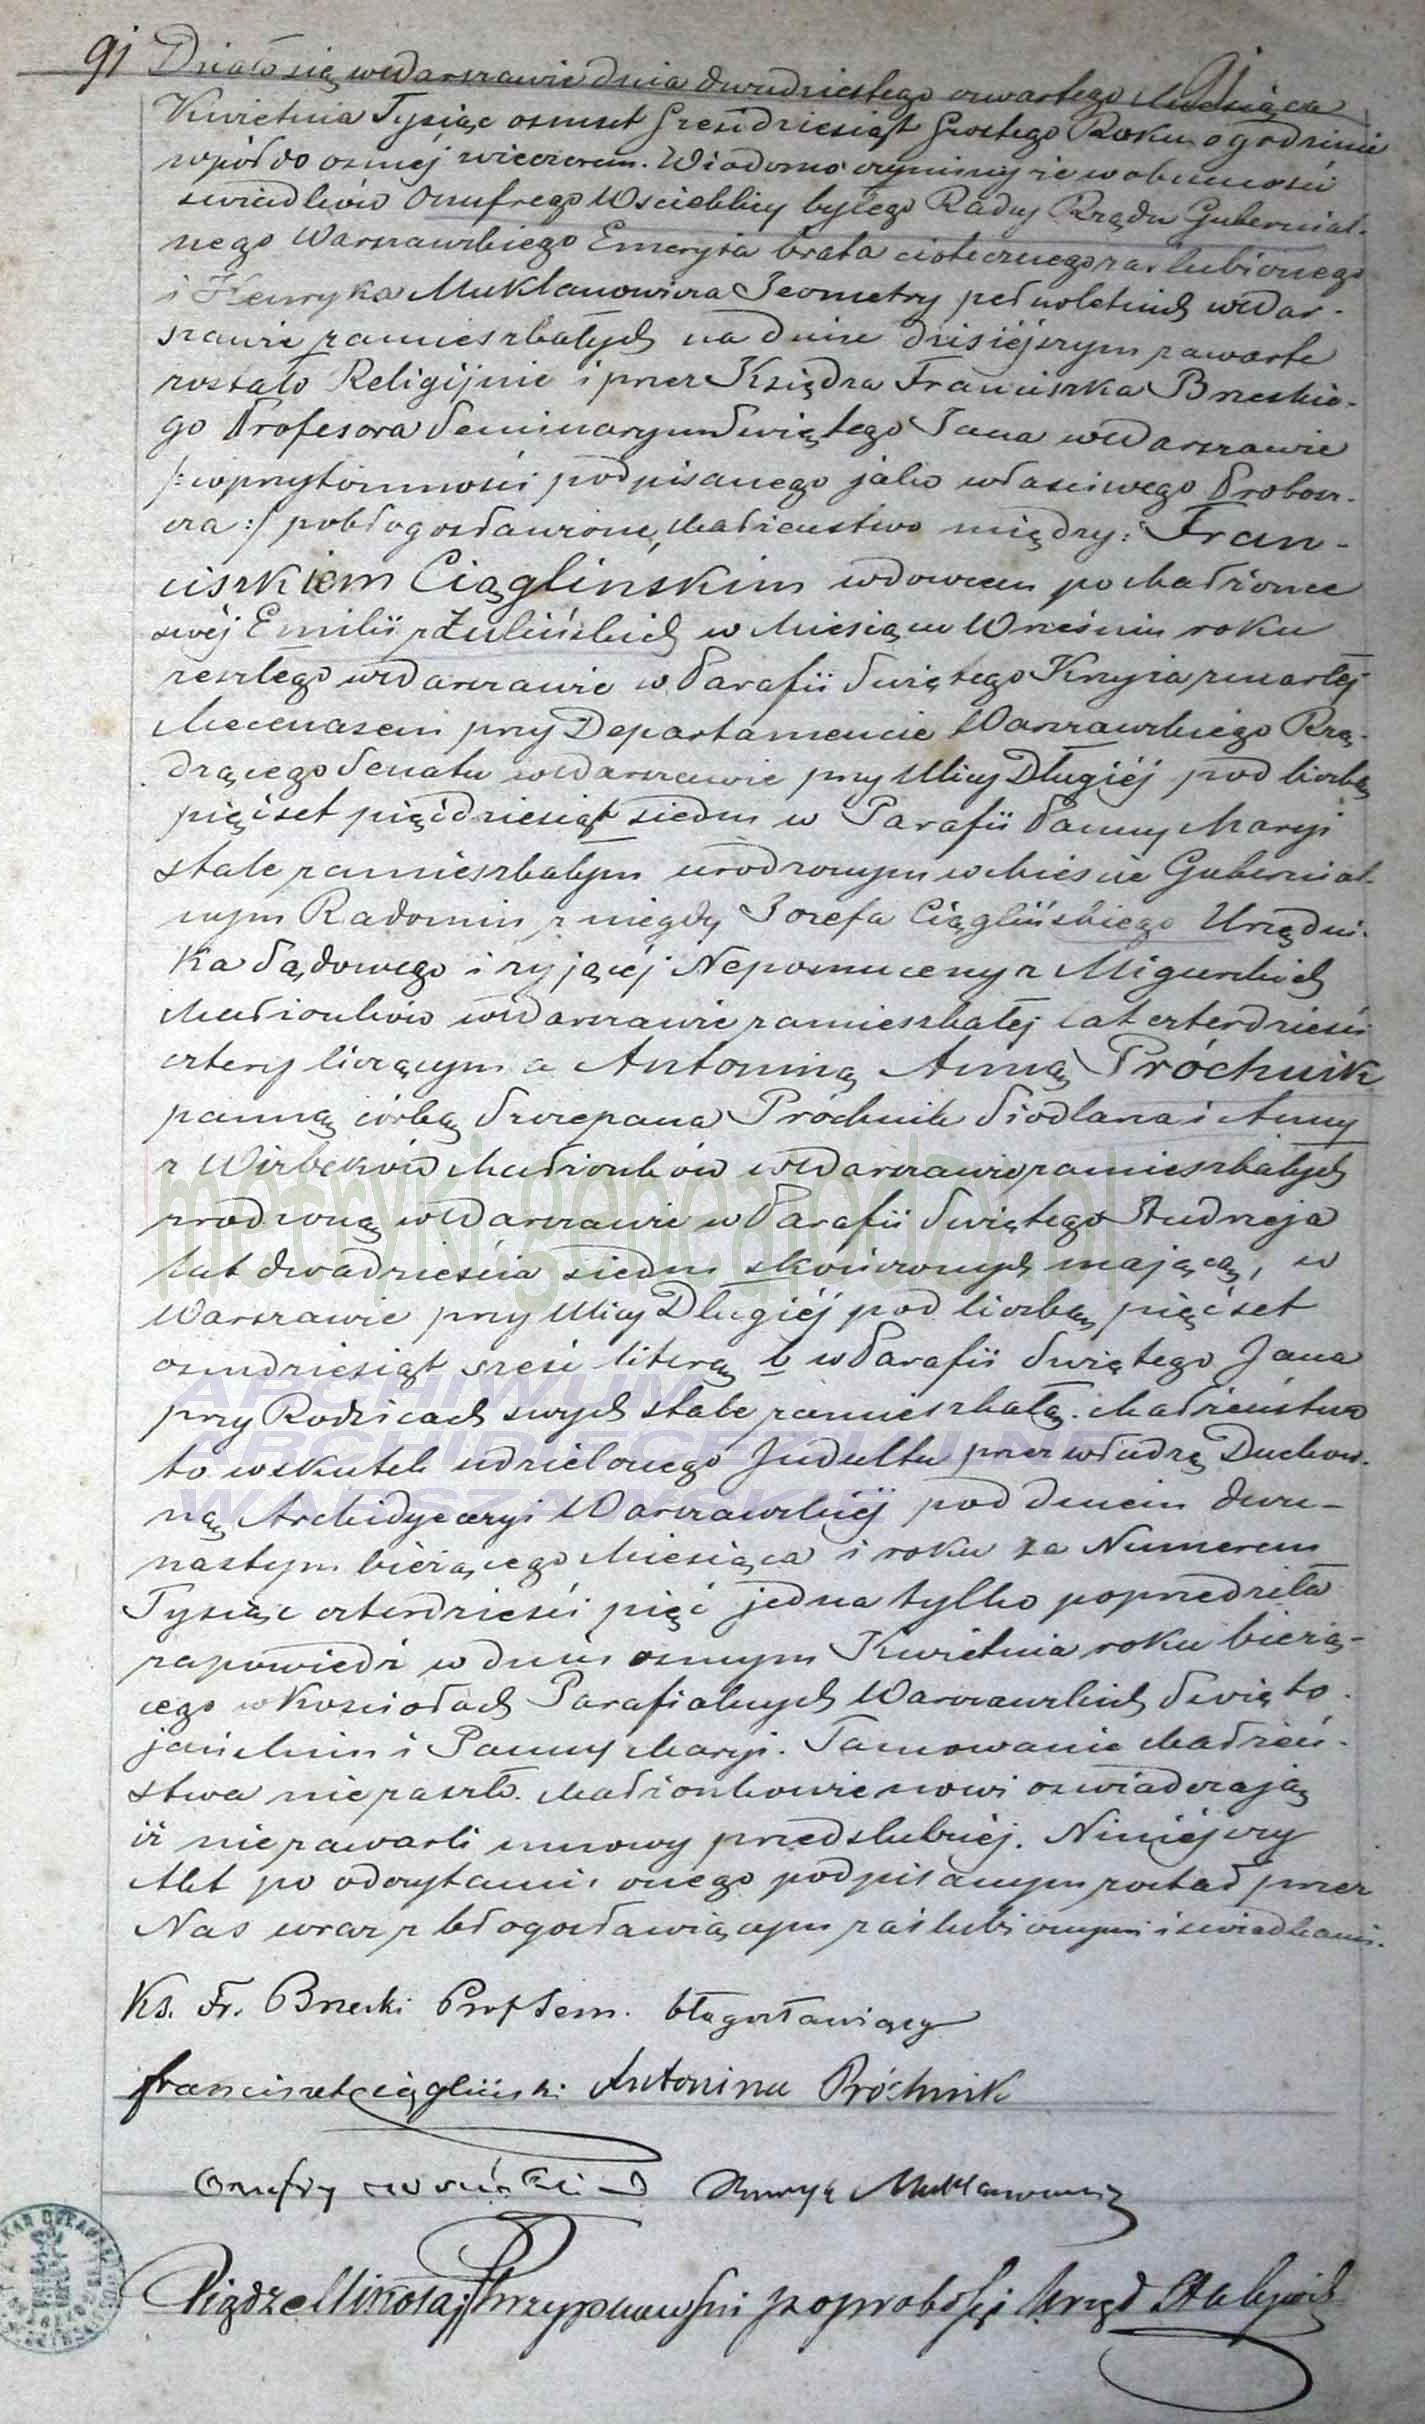 91 Działo się w Warszawie dnia dwudziestego czwartego Miesiąca
Kwietnia Tysiąc osmset sześdziesiąt szostego Roku o godzinie
wpół do osmej wieczorem. Wiadomo czynimy że w obecności
swiadków Onufrego Wscieklicy byłego Radcy Rządu Gubernial-
nego Warszawskiego Emeryta brata ciotecznego zaslubionego
i Henryka Muklanowicza Jeometry pełnoletnich w War-
szawie zamieszkałych na dniu dzisiéjszym zawarte
zostało Religijnie i przez Księdza Franciszka Brzeskie-
go Profesora Seminaryum Świętego Jana w Warszawie
/: w przytomności podpisanego jako właściwego Probosz-
cza :/ pobłogosławione, Małżeństwo między: Fran-
ciszkiem Ciąglińskim wdowcem po Małżonce
swéj Emilii z Żulińskich w Miesiącu Wrześniu roku
zeszłego w Warszawie w Parafii Świętego Krzyża zmarłéj
Mecenasem przy Departamencie Warszawskiego Rzą-
dzącego Senatu w Warszawie przy Ulicy Długiéj pod liczbą
pięćset pięćdziesiąt siedm w Parafii Panny Maryi
stale zamieszkałym urodzonym w Mieście Gubernial-
nym Radomiu z niegdy Jozefa Ciąglińskiego Urzędni-
ka Sądowego i żyjącéj Nepomuceny z Migurskich
Małżonków w Warszawie zamieszkałéj lat czterdzieści
cztery liczącym a Antoniną Anną Próchnik
panną córką Szczepana Próchnik Siodlarza i Anny
z Wirbeków Małżonków w Warszawie zamieszkałych
zrodzoną w Warszawie w Parafii Świętego Andrzeja
lat dwadzieścia siedm skończonych mającą, w
Warszawie przy Ulicy Długiéj pod liczbą pięćset
osmdziesiąt sześć literą b w Parafii Świętego Jana
przy Rodzicach swych stale zamieszkałą. Małżeństwo
to wskutek udzielonego Indultu przez władzę Duchow-
ną Archidyecezyi Warszawskiéj pod dniem dwu-
nastym bieżącego Miesiąca i roku za Numerem
Tysiąc czterdzieści pięć jedna tylko poprzedziła
zapowiedź w dniu osmym Kwietnia roku bieżą-
cego w Kosciołach Parafialnych Warszawskich Święto-
jańskim i Panny Maryi. Tamowanie Małżeń-
stwa nie zaszło. Małżonkowie nowi oswiadczają
iż nie zawarli umowy przedslubnéj. Niniéjszy
Akt po odczytaniu onego podpisanym został przez
Nas wraz z błogosławiącym zaslubionymi i swiadkami.
Ks. Fr. Brzeski Prof Sem. błogosławiący
Franciszek Ciągliński Antonina Próchnik
Onufry Henryk Muklanowicz
Xiądz Mikołaj